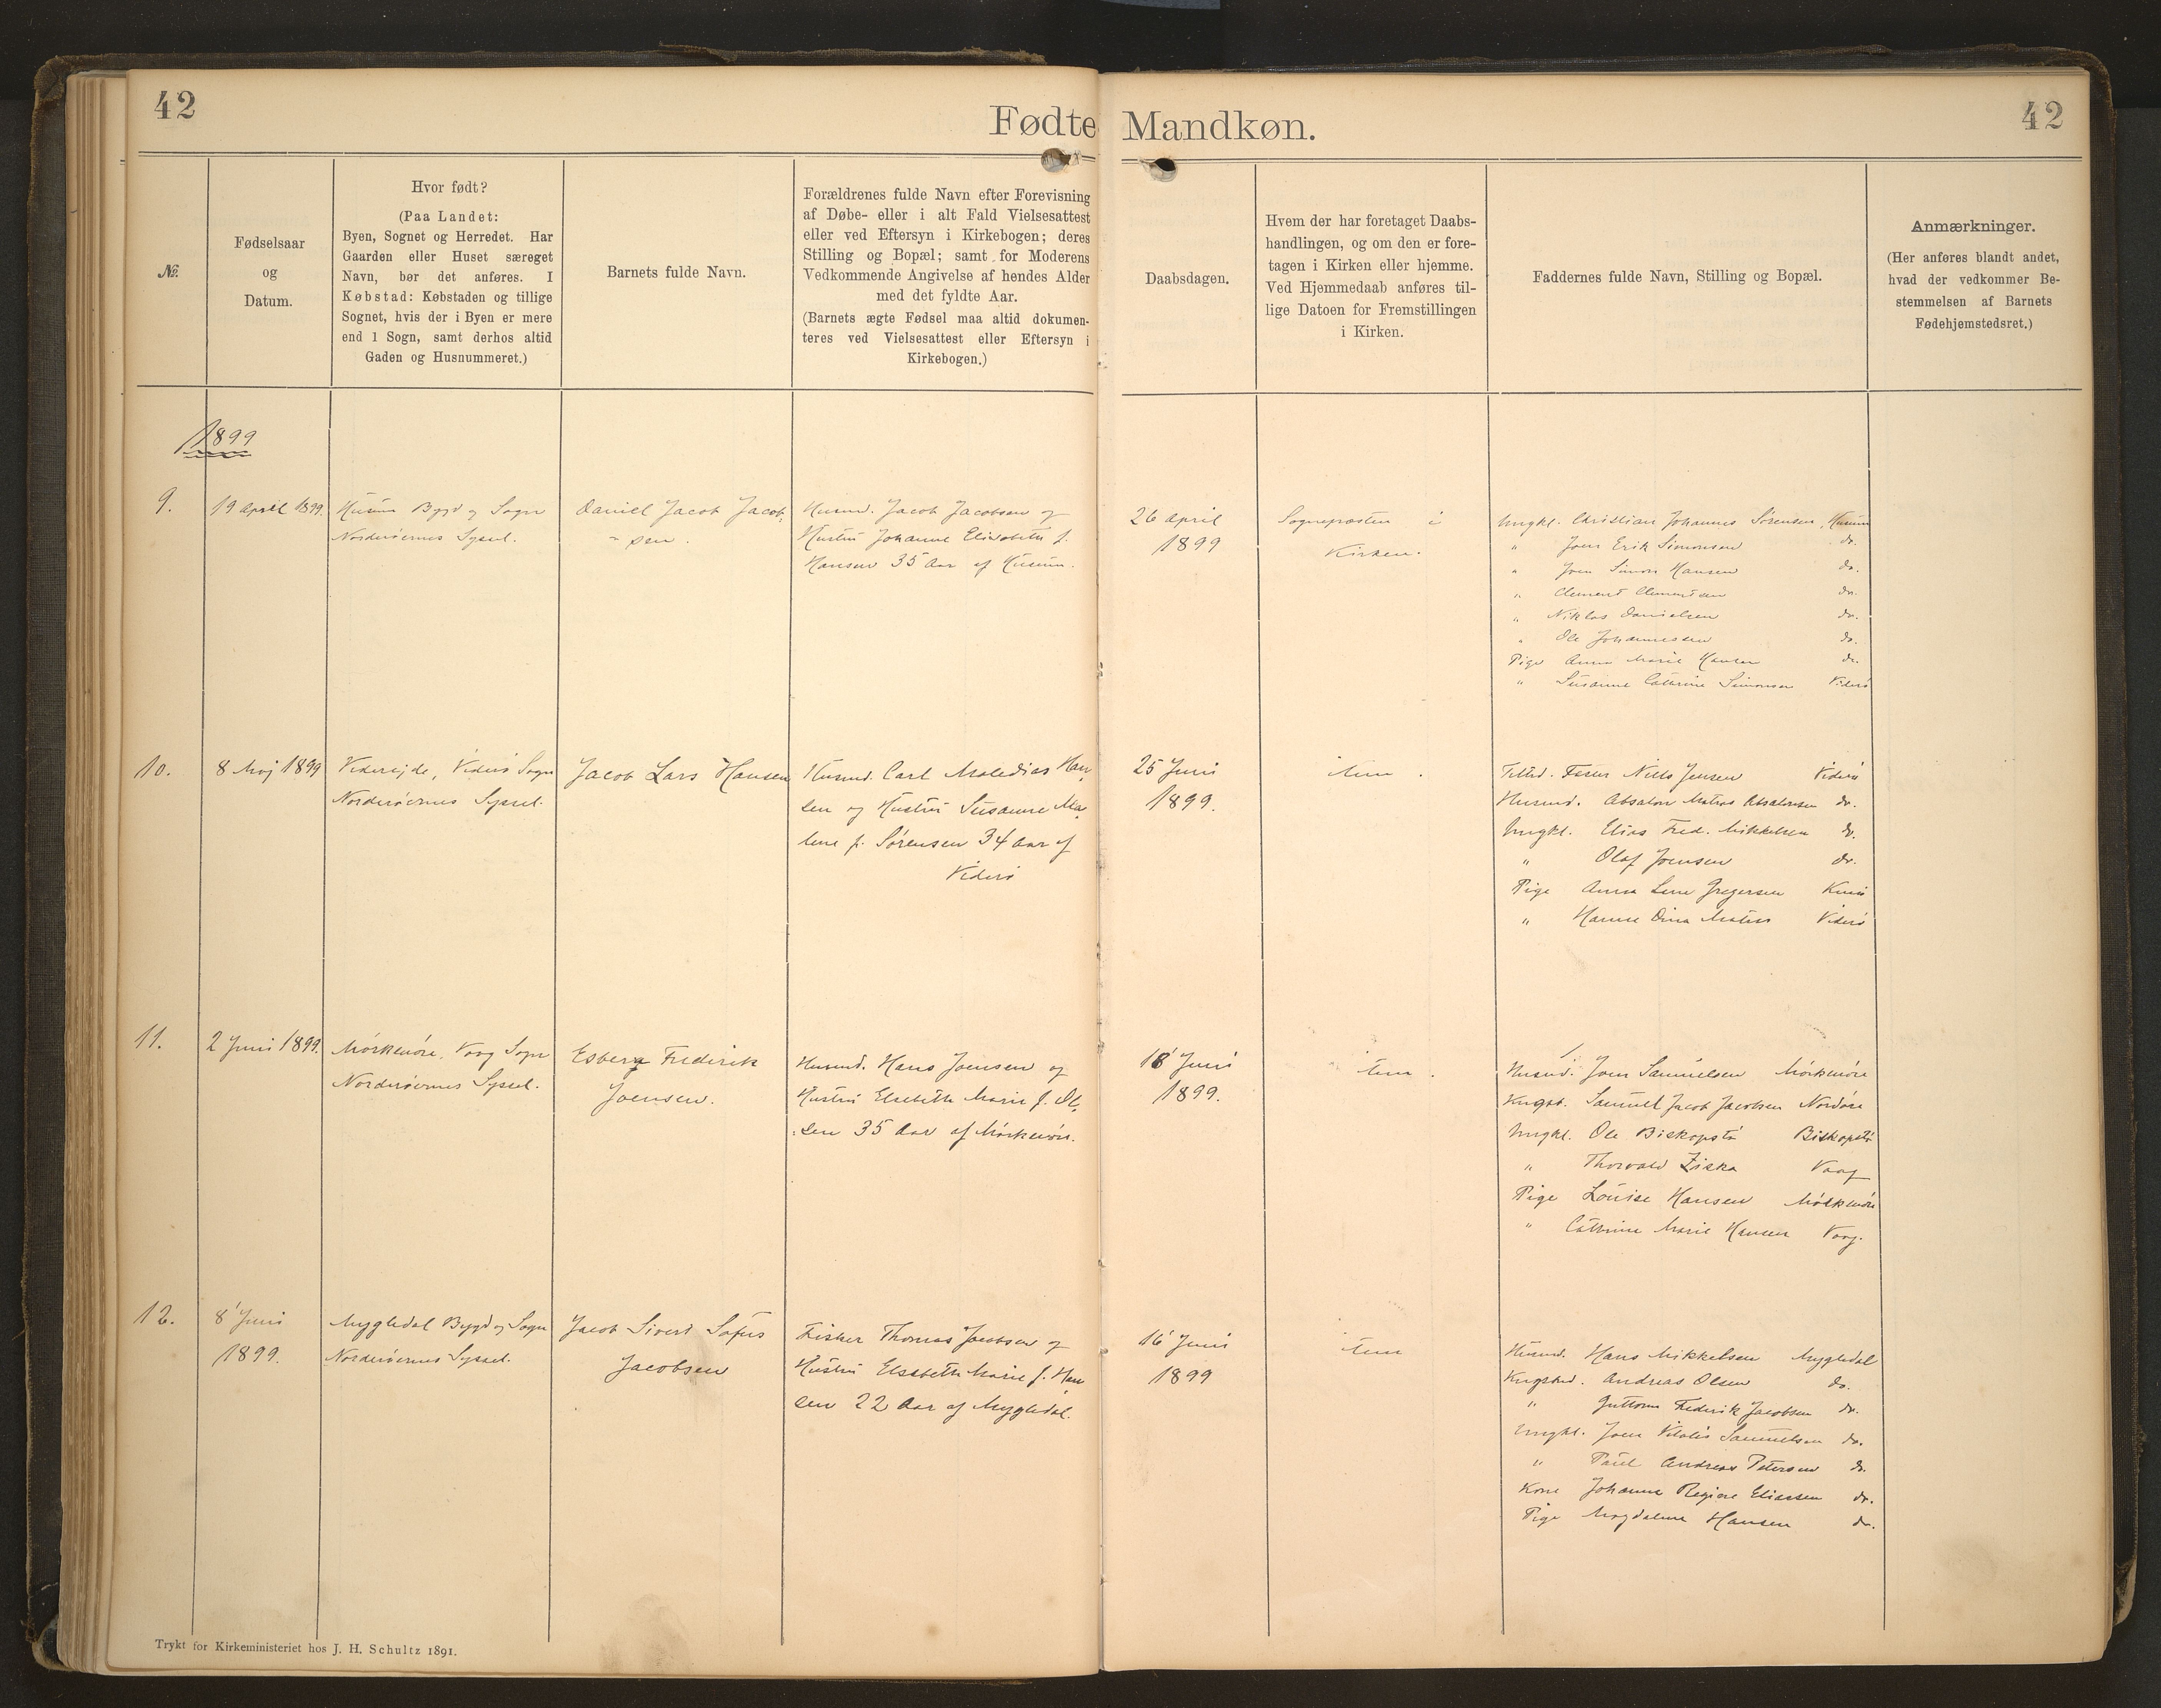 42
Fødte Mandkøn.
42
№
Fødselsaar
og
Datum.
Hvor født?
(Paa Landet:
Byen, Sognet og Herredet. Har
Gaarden eller Huset særeget
Navn, bør det anføres. I
Købstad: Købstaden og tillige
Sognet, hvis der i Byen er mere
end 1 Sogn, samt derhos altid
Gaden og Husnummeret.)
Barnets fulde Navn.
Forældrenes fulde Navn efter Forevisning
af Døbe- eller i alt Fald Vielsesattest
eller ved Eftersyn i Kirkebogen; deres
Stilling og Bopæl; samt for Moderens
Vedkommende Angivelse af hendes Alder
med det fyldte Aar.
(Barnets ægte Fødsel maa altid dokumen-
teres ved Vielsesattest eller Eftersyn i
Kirkebogen.)
Daabsdagen.
Hvem der har foretaget Daabs-
handlingen, og om den er fore-
tagen i Kirken eller hjemme.
Ved Hjemmedaab anføres til-
lige Datoen for Fremstillingen
i Kirken.
Faddernes fulde Navn, Stilling og Bopæl.
Anmærkninger.
(Her anføres blandt andet,
hvad der vedkommer Be-
stemmelsen af Barnets
Fødehjemstedsret.)
1899
9.
19 April 1899.
Husum Bygd og Sogn
Norderøernes Syssel.
Daniel Jacob Jacob-
sen.
Husmd. Jacob Jacobsen og
Hustru Johanne Elisabeth f.
Hansen 35 Aar af Husum.
26 April
1899
Sognepræsten i
Kirken.
Ungkl. Christian Johannes Sørensen, Husum
" Joen Erik Simonsen do.
" Joen Simon Hansen do.
" Clement Clementsen do.
" Niklas Danielsen do.
" Ole Johannessen do.
Pige Anna Marie Hansen do.
" Susanne Cathrine Simonsen Viderø
10.
8 Maj 1899
Viderejde, Viderø Sogn
Norderøernes Syssel.
Jacob Lars Hansen
Husmd. Carl Han-
sen og Hustru Susanne Ma-
lene f. Sørensen 34 Aar af
Viderø
25 Juni
1899.
item.
Niels Jensen Viderø
Husmd. Absalon Matras Absalonsen do.
Ungkl. Elias Fred. Mikkelsen do.
" Olaf Joensen do.
Pige Anna Lene Gregersen Kunø
" Hanne Dina Matras Viderø
11.
2 Juni 1899.
Mørkenøre, Vaag Sogn
Norderøernes Syssel.
Esberg Frederik
Joensen.
Husmd. Hans Joensen og
Hustru Elsebeth Marie f. Ol-
sen 35 Aar af Mørkenøre.
18 Juni
1899.
item.
Husmd. Joen Samuelsen Mørkenøre
Kngsb. Samuel Jacob Jacobsen Nordøre
Ungkl. Ole Biskopstø Biskopstø
" Thorvald Ziska Vaag
Pige Louise Hansen Mørkenøre
" Cathrine Marie Hansen Vaag.
12.
8 Juni
1899.
Mygledal Bygd og Sogn
Norderøernes Syssel.
Jacob Sivert Sofus
Jacobsen
Fisker Thomas Jacobsen og
Hustru Elsebeth Marie f. Han-
sen 22 Aar af Mygledal.
16 Juni
1899
item
Husmd. Hans Mikkelsen Mygledal
Andreas Olsen do.
" Guttorm Frederik Jacobsen do.
Ungkl. Joen Vitalis Samuelsen do.
" Paul Andreas Petersen do.
Kone Johanne Regine Eliassen do.
Pige Magdalene Hansen do.
Trykt for Kirkeministeriet hos J. H. Schultz 1891.